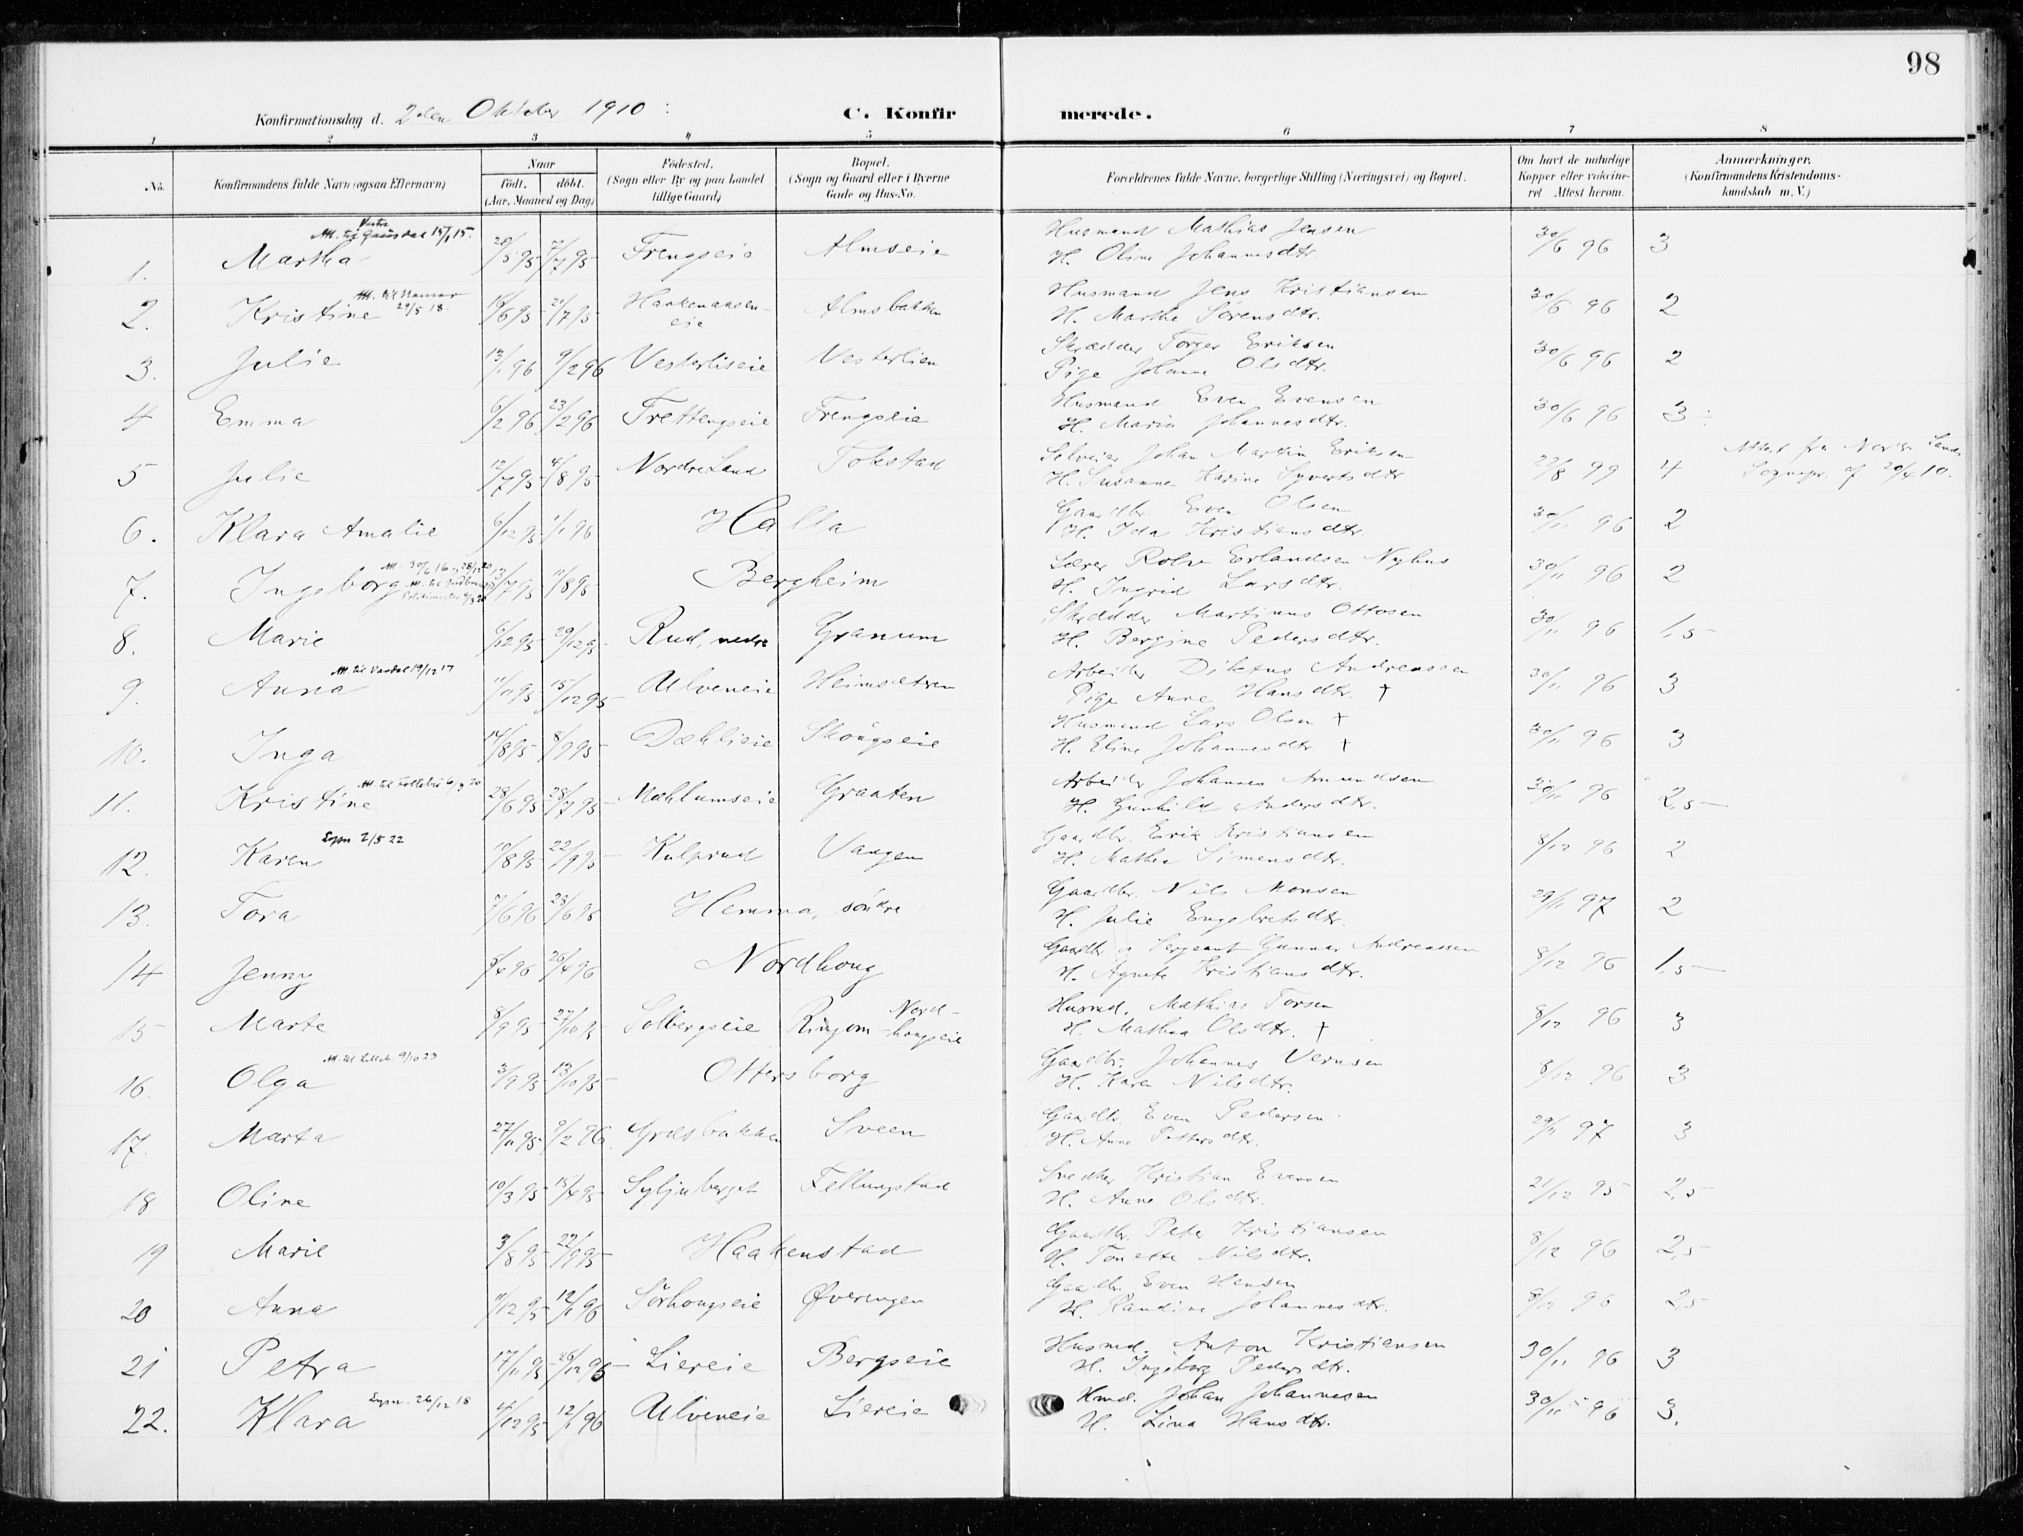 98
Konfirmationsdag d. 2den Oktober 1910. C. Konfirmerede.
1 2 3 4 5 6 7 8
No. Konfirmandens fulde Navn (ogsaa Efternavn) Naar födt. döbt. (Aar, Maaned og Dag) Födested. (Sogn eller By og paa Landet tillige Gaard) Bopæl. (Sogn og Gaard eller i Byerne Gade og Hus-No. Forældrenes fulde Navne, borgerlige Stilling (Næringsvei) og Bopæl. Om havt de naturlige Kopper eller vakcineret Attest herom. Anmærkninger, (Konfirmandens Kristendomskundskab m. V.)
Att. til Vestre Gausdal 15/1 15.
1. Martha 20/5 95 7/7 95 Frengseie Almseie Husmand Mathias Jensen 30/6 96 3
H. Oline Johannesdtr.
Att. til Hamar 29/5 18.
2. Kristine 15/6 95 21/7 95 Haakenaaseneie Almsbakken Husmand Jens Kristiansen 30/6 96 2
H. Marthe Sørensdtr.
3. Julie 13/1 96 9/2 96 Vesterlieie Vesterlien Skrædder Torger Eriksen 30/6 96 2
Pige Johanne Olsdtr.
4 Emma 6/2 96 23/2 96 Frettengseie Frengseie Husmand Even Evensen 30/6 96 3
H. Marie Johannesdtr.
5 Julie 12/7 95 4/8 95 Nordre Land Tokstad Selveier Johan Martin Eriksen 27/8 99 4 Attest fra Nordre Lands
H. Susanne Karine Syvertsdtr Sognepr. af 20/4 10.
6. Klara Amalie 6/12 95 1/1 96 Halla Gaardbr. Even Olsen 30/11 96 2
H. Ida Kristiansdtr.
Att. 30/6 16 28/12 20
7. Ingeborg 13/7 95 11/8 95 Bergheim Lærer Rolv Erlandsen Nyhus 30/11 96 2
H. Ingrid Larsdtr.
8. Marie 6/12 95 29/12 95 Rud, nedre Granum Skrædder Martinus Ottosen 30/11 96 1,5
H. Bergine Pedersdtr.
Att. til Vardal 19/12 17
9. Anna 11/11 95 15/12 95 Ulveneie Heimsætren Arbeider Diktus Andreassen 30/11 96 3
Pige Anne Hansdtr. †
10. Inga 14/8 95 8/9 95 Dæhlieie Skougseie Husmand Lars Olsen † 30/11 96 3
H. Eline Johannesdtr. †
11. Kristine 28/6 95 28/7 95 Mæhlumseie Graaten Arbeider Johannes Amundsen 30/11 96 2,5
H. Gunhild Andersdtr.
Lysn 2/5 22
12. Karen 10/8 95 22/9 95 Kulprud Vangen Gaardbr. Erik Kristiansen 8/12 96 2
H. Mathea Simensdtr.
13. Tora 7/6 96 28/6 96 Hemma, söndre Gaardbr. Nils Monsen 29/11 97 2
H. Julie Engebretsdtr.
14 Jenny 3/4 96 26/4 96 Nordhoug Gaardbr. og Sergeant Gunnar Andreassen 8/12 96 1,5
H. Agnete Kristiansdtr.
15 Marte 8/9 95 27/10 95 Solbergseie Ringom-Nordhougseie Husmd. Mathias Torsen 8/12 96 3
H. Mathea Olsdtr. †
Att. til Lilleh. 9/10 23
16. Olga 3/9 95 13/10 95 Ottersborg Gaardbr. Johannes Vernsen 8/12 96 3
H. Karen Nilsdtr.
17. Marta 27/11 95 9/2 96 Græsbakken Sveen Gaardbr. Even Pedersen 29/11 97 3
H. Anne Pettersdtr.
18 Oline 10/3 95 15/4 95 Syljuberget Fellungstad Snedker Kristian Evensen 21/12 95 2,5
H. Anne Olsdtr.
19 Marie 3/8 95 22/9 95 Haakenstad Gaardbr. Peter Kristiansen 8/12 96 2,5
H. Tonette Nilsdtr.
20 Anna 11/12 95 12/1 96 Sörhougseie Øverengen Gaardbr. Even Hansen 8/12 96 2,5
H. Randine Johannesdtr.
21 Petra 17/11 95 26/12 95 Liereie Bergseie Husmd. Anton Kristiansen 30/11 96 3
H. Ingeborg Pedersdtr.
Lysn. 26/12 18
22. Klara 4/12 95 12/1 96 Ulveneie Liereie Hmd. Johan Johannesen 30/11 96 3.
H. Lina Hansdtr.